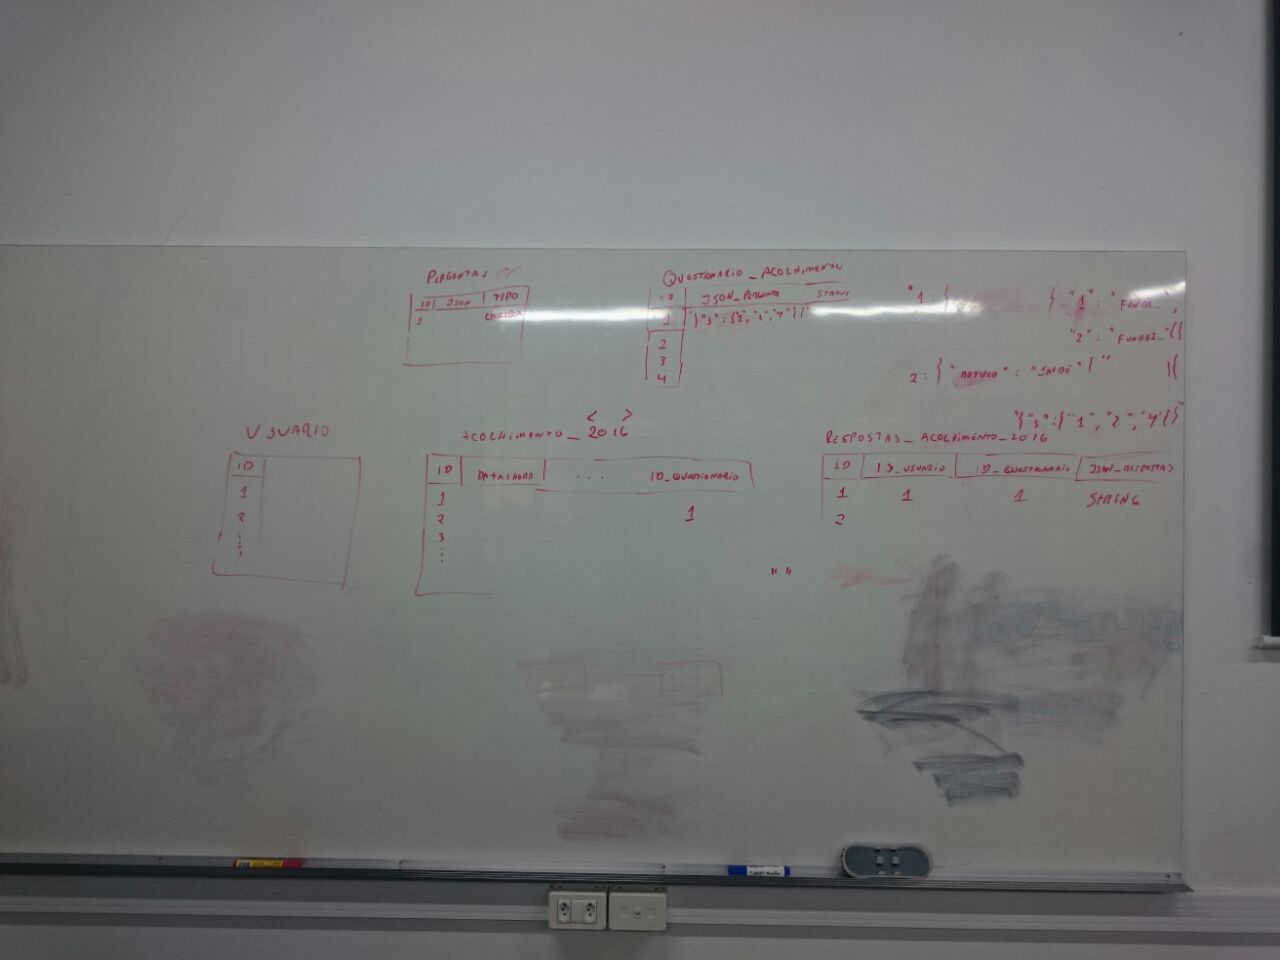 PERGUNTAS
ID JSON TIPO
CHECKBOX
QUESTIONARIO_ACOLHIMENTO
ID JSON_PERGUNTA STATUS
1 "}"3":{"1","2","4"}{"
2
3
4
"1:{ } "1": "FUNDA...",
"2": "FUNDAZ..."{}
2:} "ROTULO": "SAUDE"{" }{
"{"3":{"1","2","4"}}"
USUARIO
ID
1
2
< >
ACOLHIMENTO_2016
ID DATA+HORA ... ID_QUESTIONARIO
1
2 1
3
RESPOSTAS_ACOLHIMENTO_2016
ID ID_USUARIO ID_QUESTIONARIO JSON_RESPOSTAS
1 1 1 STRING
2
" "